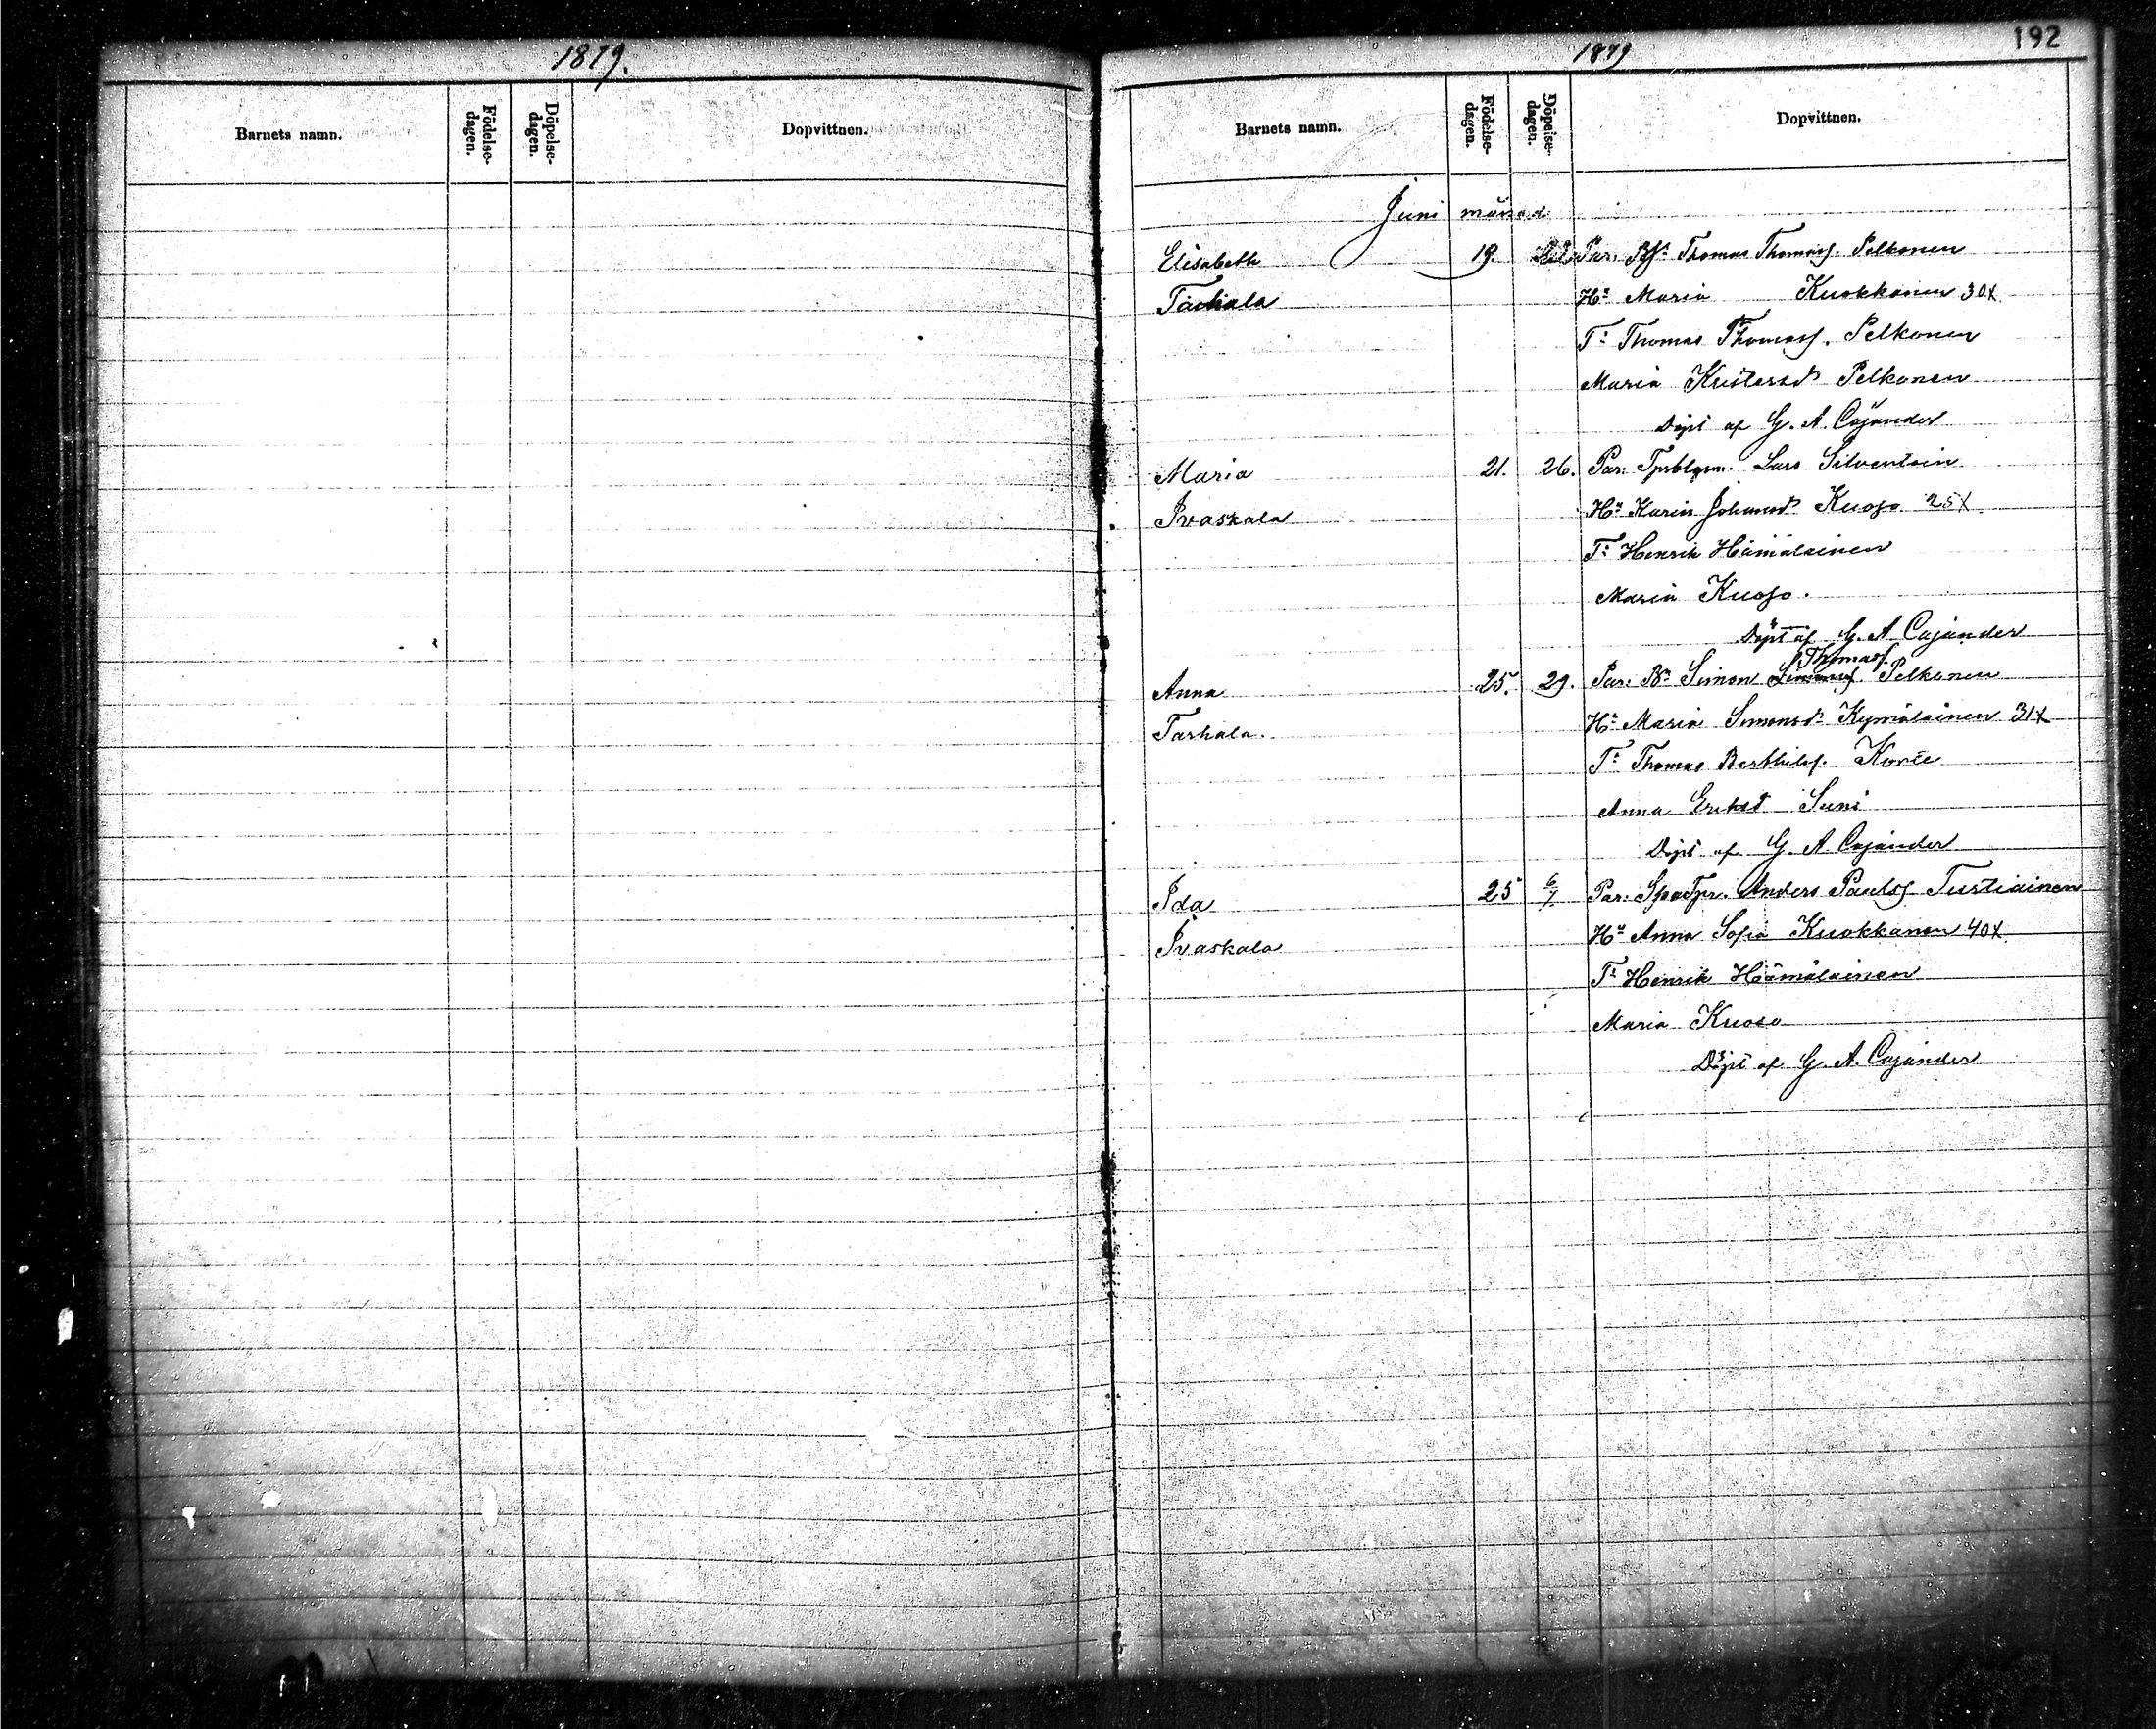 1879.
Barnets namn. Födelse-dagen. Döpelse-dagen. Dopvittnen.
192
1879
Barnets namn. Födelse-dagen. Döpelse-dagen. Dopvittnen.
Juni månad
Elisabeth 19. Par: Thomas Thomass. Pelkonen
H: Maria Kuokkanen 30X
T: Thomas Thomass. Pelkonen
Maria Kristersd Pelkonen
Döpt af G. A. Cajander
Maria 21. 26. Par: Lars Silventoin
Ivaskala Hu Karin Johansd Kuoso 25X
T: Henrik Hämäläinen
Maria Kuoso.
Döpt af G. A Cajander
Thomass.
Anna 25. 29. Par: Bn Simon Simonss Pelkonen
Tarkala. H: Maria Simonsd Kymäläinen 31X
T: Thomas Berthilss. Korte
Anna Eriksd Suni
Döpt af G. A Cajander
Ida 25 6/7 Par: Anders Paulss Tustiainen
Ivaskala Hu Anna Sofia Kuokkanen 40X
T: Henrik Hämäläinen
Maria Kuoso
Döpt af G. A. Cajander